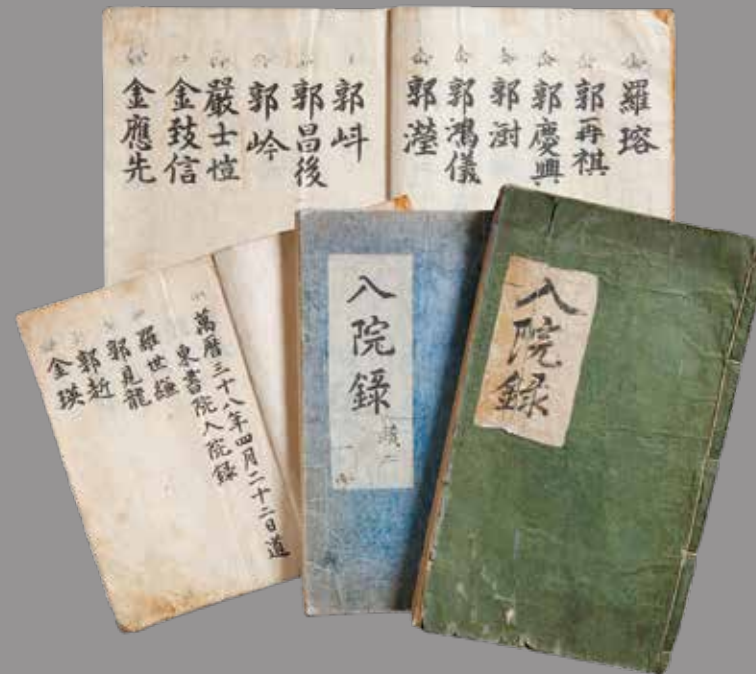 羅瑢
郭再祺
郭慶興
郭澍
郭鴻儀
郭瀅
郭
郭昌後
郭岒
嚴士愷
金致信
金應先
萬曆三十八年四月二十二日道
東書院入院錄
羅世
郭見龍
郭
金瑛
入院錄
入院錄